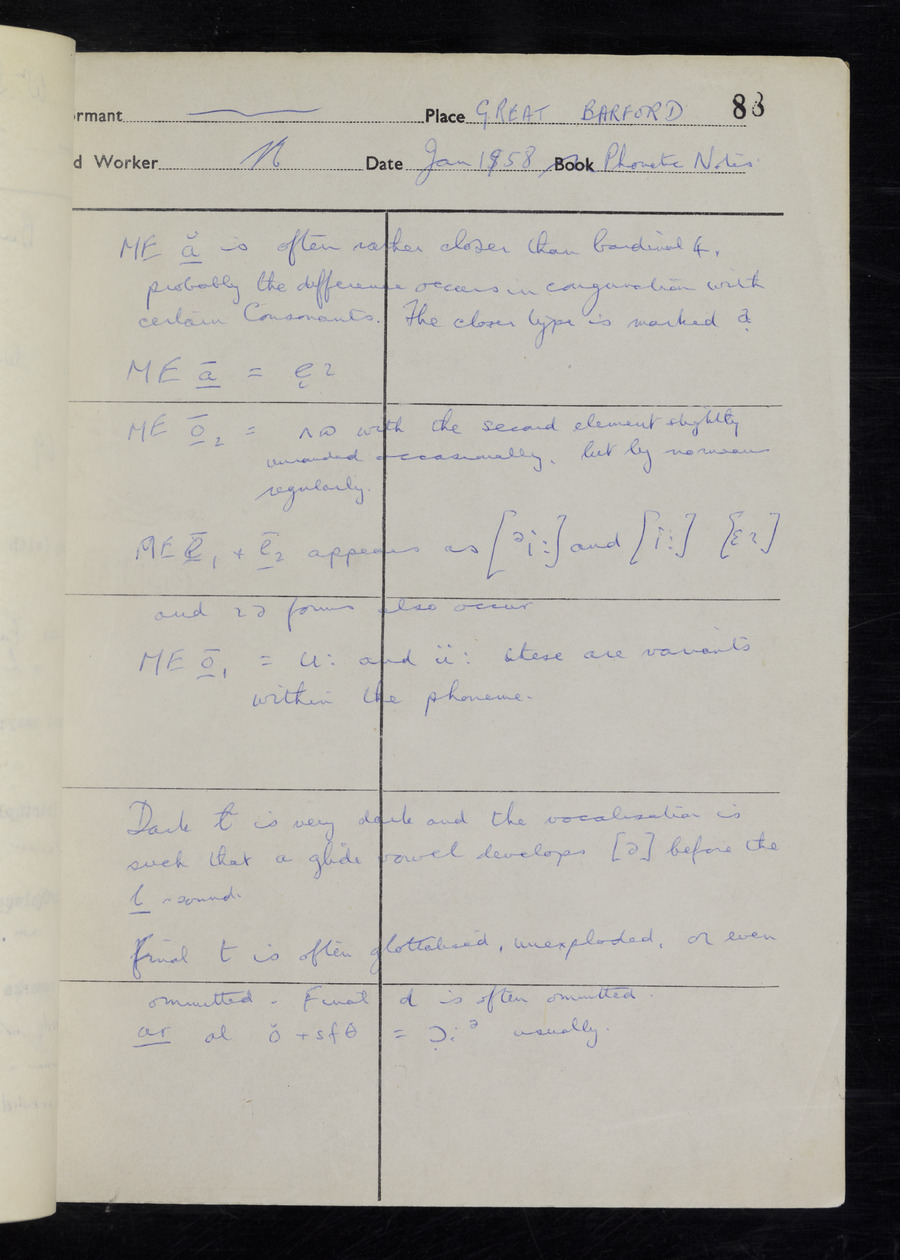 rmant Place GREAT BARFORD 88
d Worker N Date Jan 1958 Book Phonetic Notes
ME ă is often rather closer than Cardinal 4,
probably the difference occurs in conjunction with
certain Consonants. The closer type is marked
ME ā = ẹɪ
ME ō₂ = ʌɷ with the second element slightly
unrounded occasionally, but by no means
regularly.
ME ē₁ + ē₂ appears as [ᵊi:] and [i:] [ɛɪ]
and ɪə forms also occur
ME ō₁ = u: and ü: these are variants
within the phoneme.
Dark ɫ is very dark and the vocalisation is
such that a glide vowel develops [ə] before the
l-sound.
Final t is often glottalised, unexploded, or even
ommitted. Final d is often ommitted.
ar al ŏ + s f θ = ɔ:ᵊ usually.